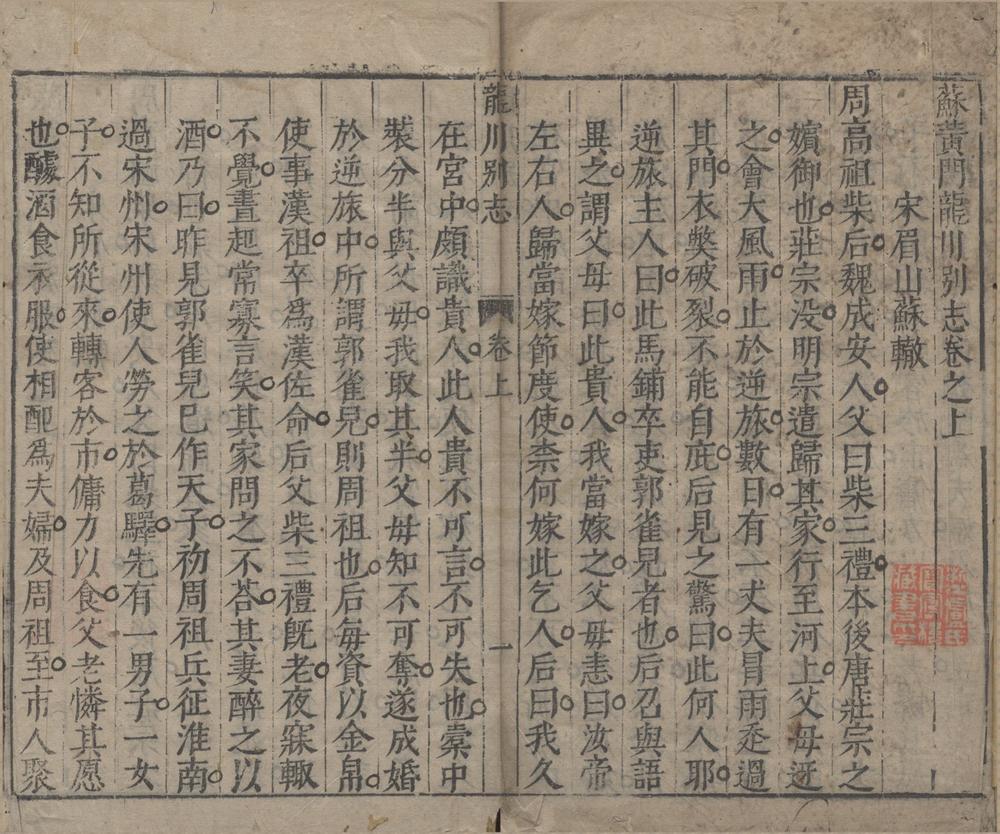 蘇黃門龍川別志卷之上
宋眉山蘇轍
周高祖柴后魏成安人父曰柴三禮本後唐莊宗之
嬪御也莊宗没明宗遣歸其家行至河上父毋迓
之會大風雨止於逆旅數日有一丈夫冒雨走過
其門衣獘破裂不能自庇后見之驚曰此何人耶
逆旅主人曰此馬鋪卒吏郭雀兒者也后召與語
異之謂父毋曰此貴人我當嫁之父毋恚曰汝帝
左右人歸當嫁節度使柰何嫁此乞人后曰我久
龍川别志 卷上 一
在宮中頗識貴人此人貴不可言不可失也橐中
裝分半與父毋我取其半父毋知不可奪遂成婚
於逆旅中所謂郭雀兒則周祖也后每資以金帛
使事漢祖卒爲漢佐命后父柴三禮旣老夜寐輙
不覺晝起常寡言笑其家問之不荅其妻醉之以
酒乃曰昨見郭雀兒已作天子初周祖兵征淮南
過宋州宋州使人勞之於葛驛先有一男子一女
子不知所從來轉客於市傭力以食父老憐其愿
也醵酒食衣服使相配爲夫婦及周祖至市人聚